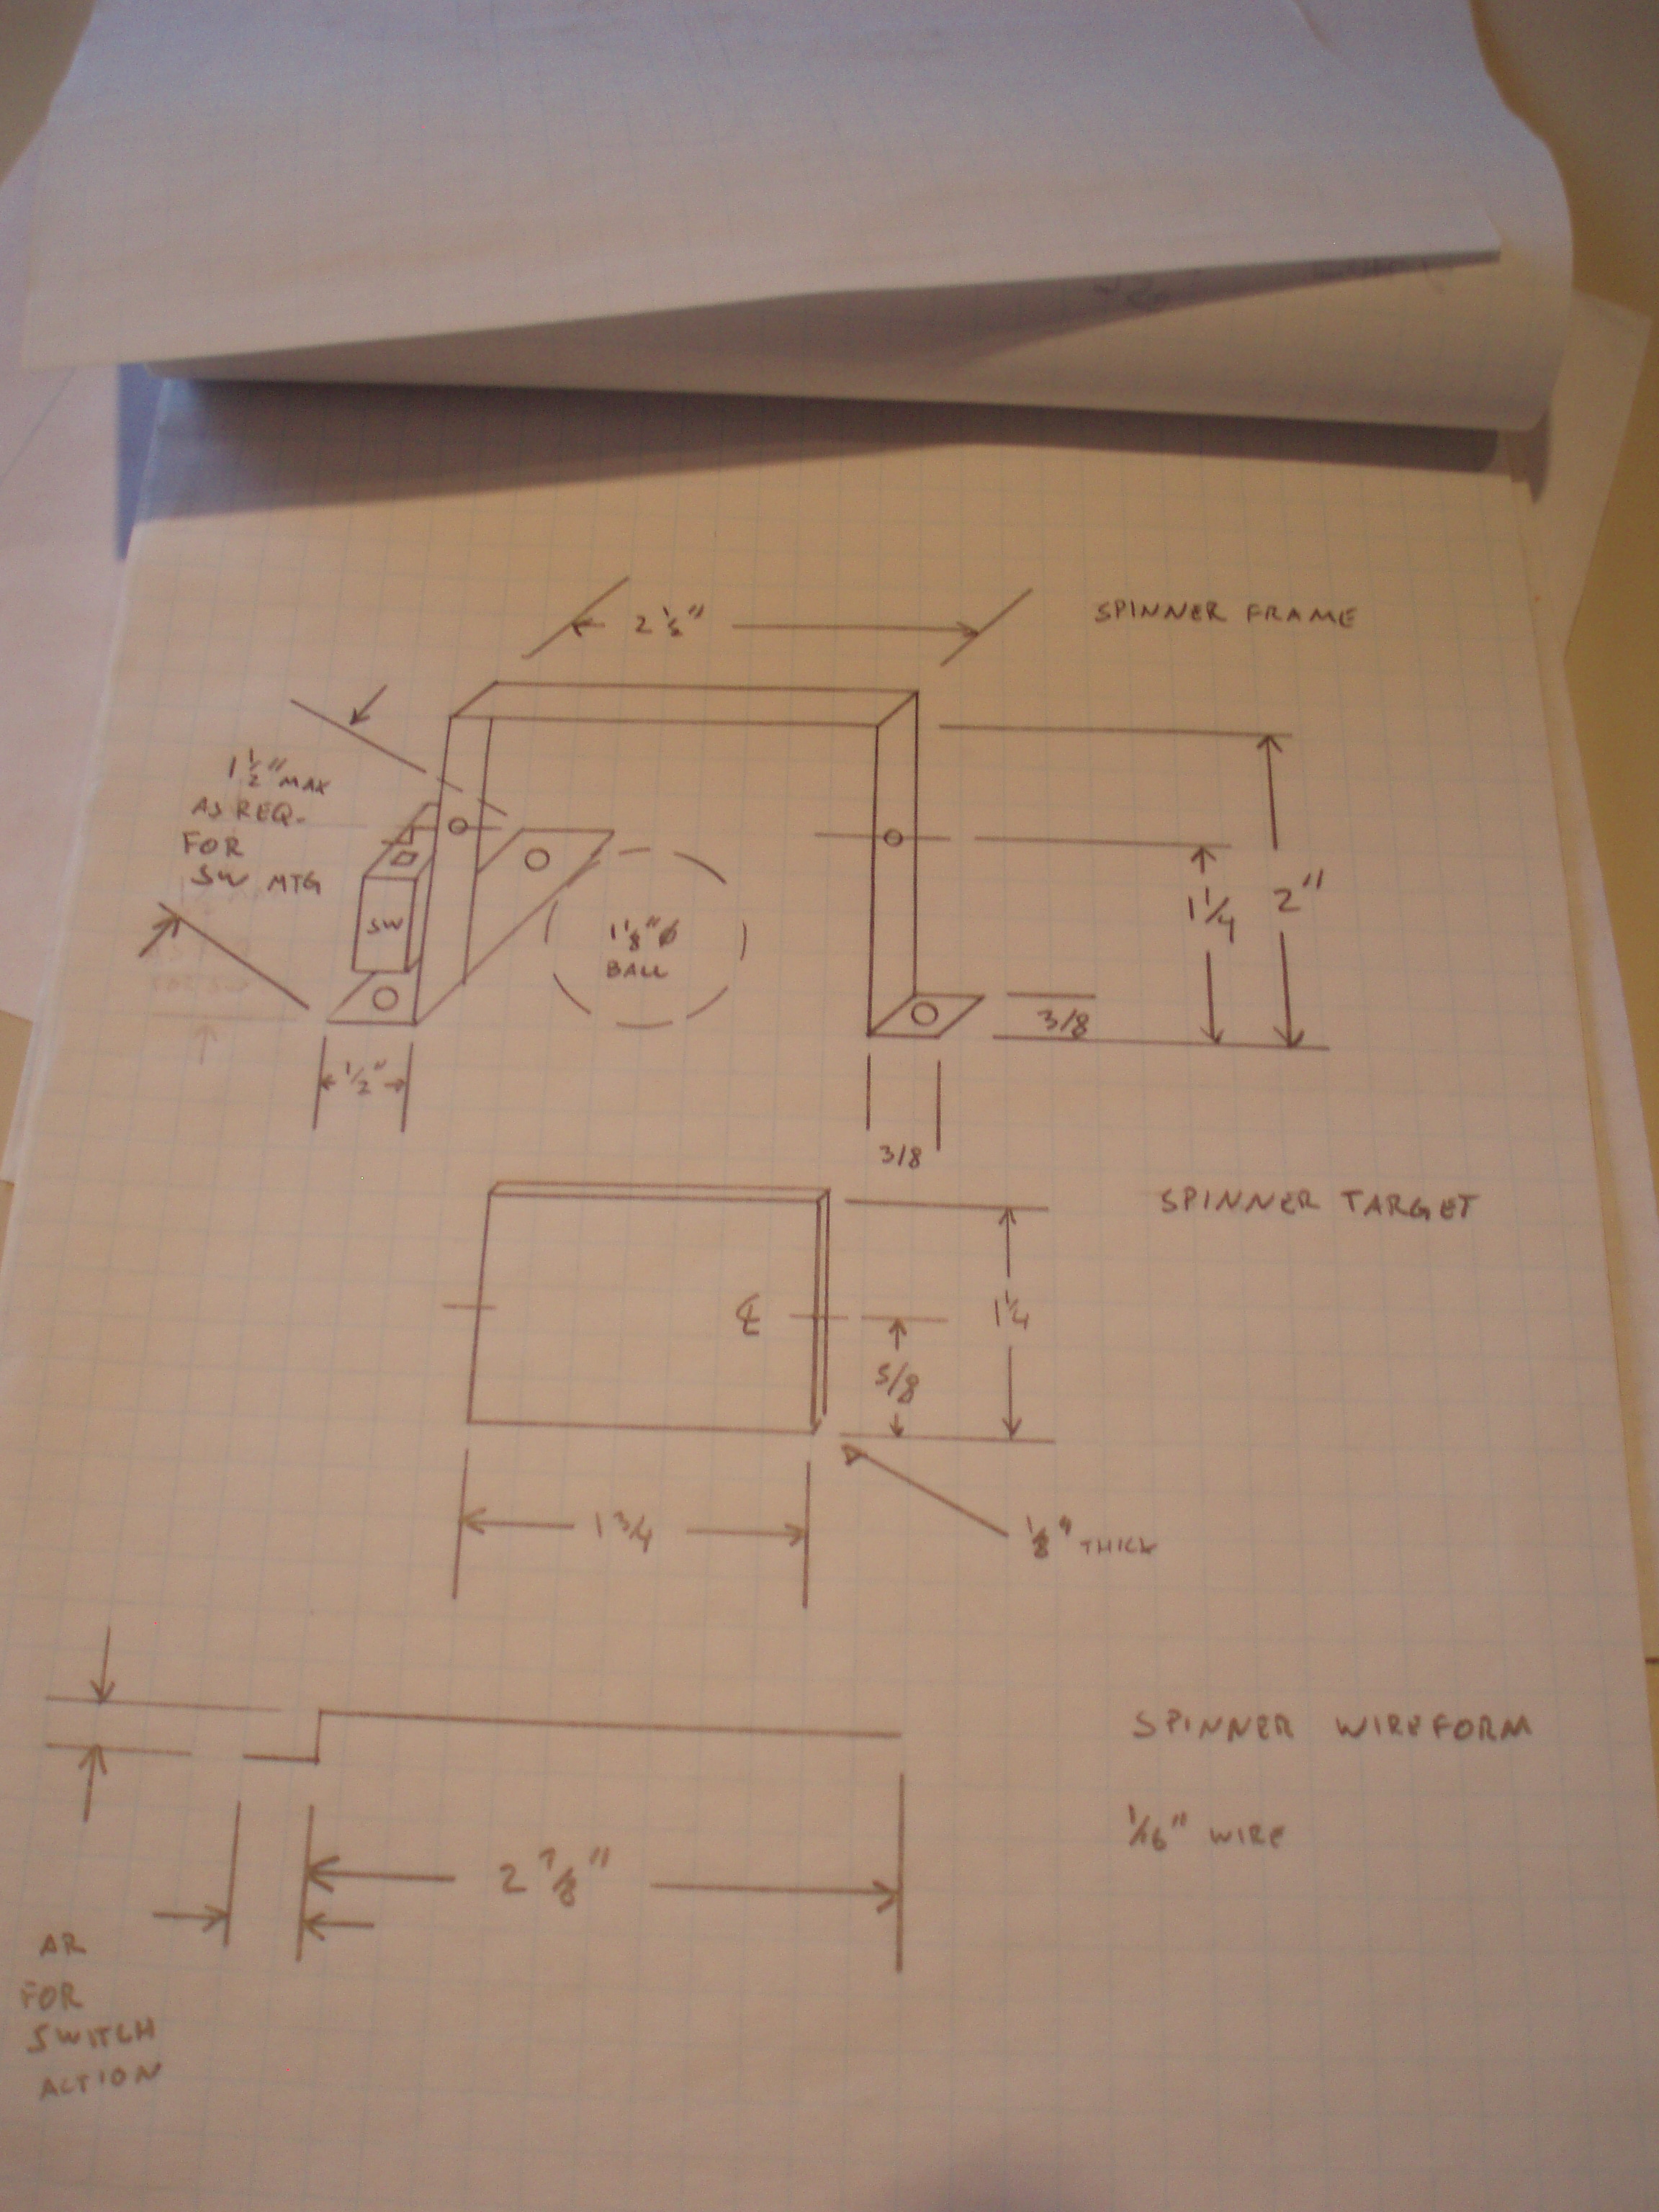 SPINNER FRAME
1 1/2" MAX
AS REQ.
FOR
SW MTG
SW
1 1/8" Ø
BALL
1 1/4
2"
3/8
1/2"
3/8
SPINNER TARGET
℄
1 1/4
5/8
1 3/4
1/8" THICK
SPINNER WIREFORM
1/16" WIRE
2 7/8"
AR
FOR
SWITCH
ACTION